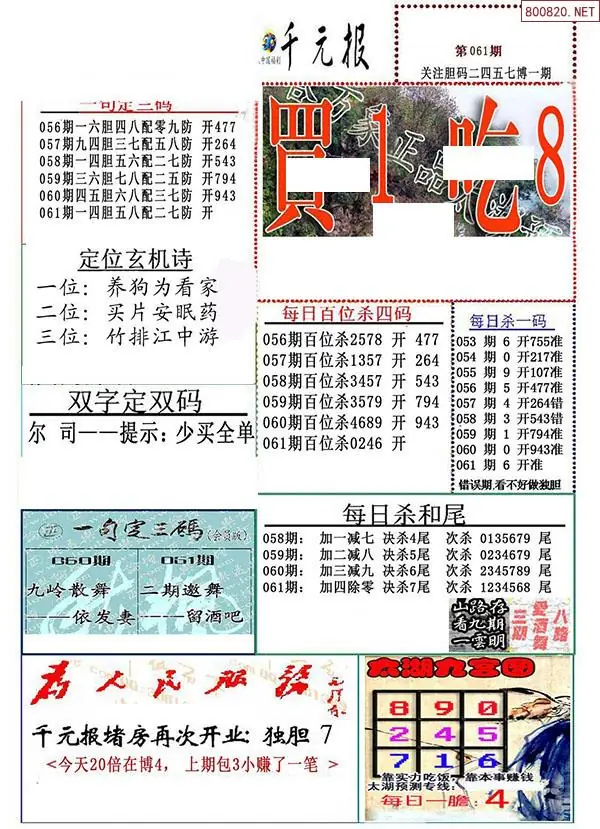 800820.NET
千元报
中国福利
第061期
关注胆码二四五七博一期
買1吃8
一句定三码
056期一六胆四八配零九防 开477
057期九四胆三七配五八防 开264
058期一四胆五六配二七防 开543
059期三六胆七八配二五防 开794
060期四五胆六七配三八防 开943
061期一四胆五八配二七防 开
定位玄机诗
一位: 养狗为看家
二位: 买片安眠药
三位: 竹排江中游
每日百位杀四码
056期百位杀2578 开 477
057期百位杀1357 开 264
058期百位杀3457 开 543
059期百位杀3579 开 794
060期百位杀4689 开 943
061期百位杀0246 开
每日杀一码
053 期 6 开755准
054 期 0 开217准
055 期 9 开107准
056 期 5 开477准
057 期 4 开264错
058 期 3 开543错
059 期 1 开794准
060 期 0 开943准
061 期 6 开准
错误期,看不好做独胆
双字定双码
尔 司——提示: 少买全单
每日杀和尾
058期: 加一减七 决杀4尾 次杀 0135679 尾
059期: 加二减八 决杀5尾 次杀 0234679 尾
060期: 加三减九 决杀6尾 次杀 2345789 尾
061期: 加四除零 决杀7尾 次杀 1234568 尾
一句定三碼(会员版)
060期 061期
九岭散舞 二期邀舞
——依发妻 ——留酒吧
山路存
看九期
一雲明
三愛八
酒
期舞路
为人民服务
千元报堵房再次开业: 独胆 7
<今天20倍在博4, 上期包3小赚了一笔 >
太湖九宫图
8 9 0
2 4 5
7 1 6
靠实力吃饭, 靠本事赚钱
太湖预测专线:
每日一胆: 4